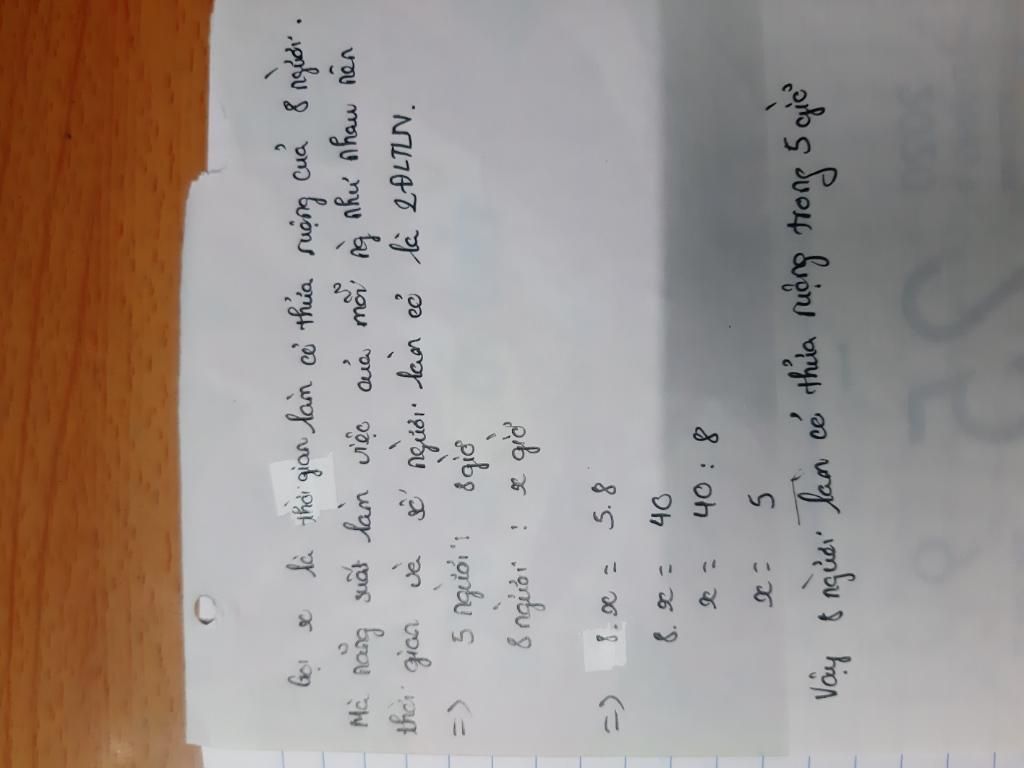 Gọi x là thời gian làm cỏ thửa ruộng của 8 người.
Mà năng suất làm việc của mỗi ng như nhau nên
thời gian và số người làm cỏ là 2ĐLTLN.
=> 5 người : 8 giờ
8 người : x giờ
=> 8. x = 5. 8
8. x = 40
x = 40 : 8
x = 5
Vậy 8 người làm cỏ thửa ruộng trong 5 giờ